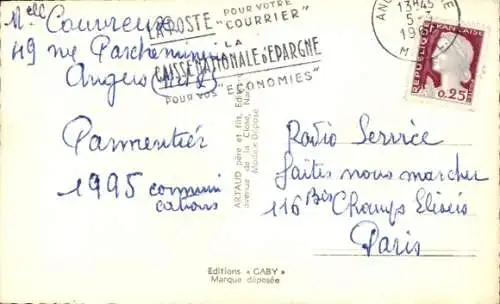 Melle Couvreux
49 rue Parcheminerie
Angers
Parmentier
1995 communi
cations
POUR VOTRE
LA POSTE "COURRIER"
LA
CAISSE NATIONALE d'EPARGNE
POUR VOS "ECONOMIES"
13H45
5-3
196
REPUBLIQUE FRANÇAISE
0,25
ARTAUD père et fils, Editeurs
avenue de la Close, Nantes
Modèle Déposé
Radio Service
faites nous marcher
116 Bis Champs Elisés
Paris
Editions « GABY »
Marque déposée